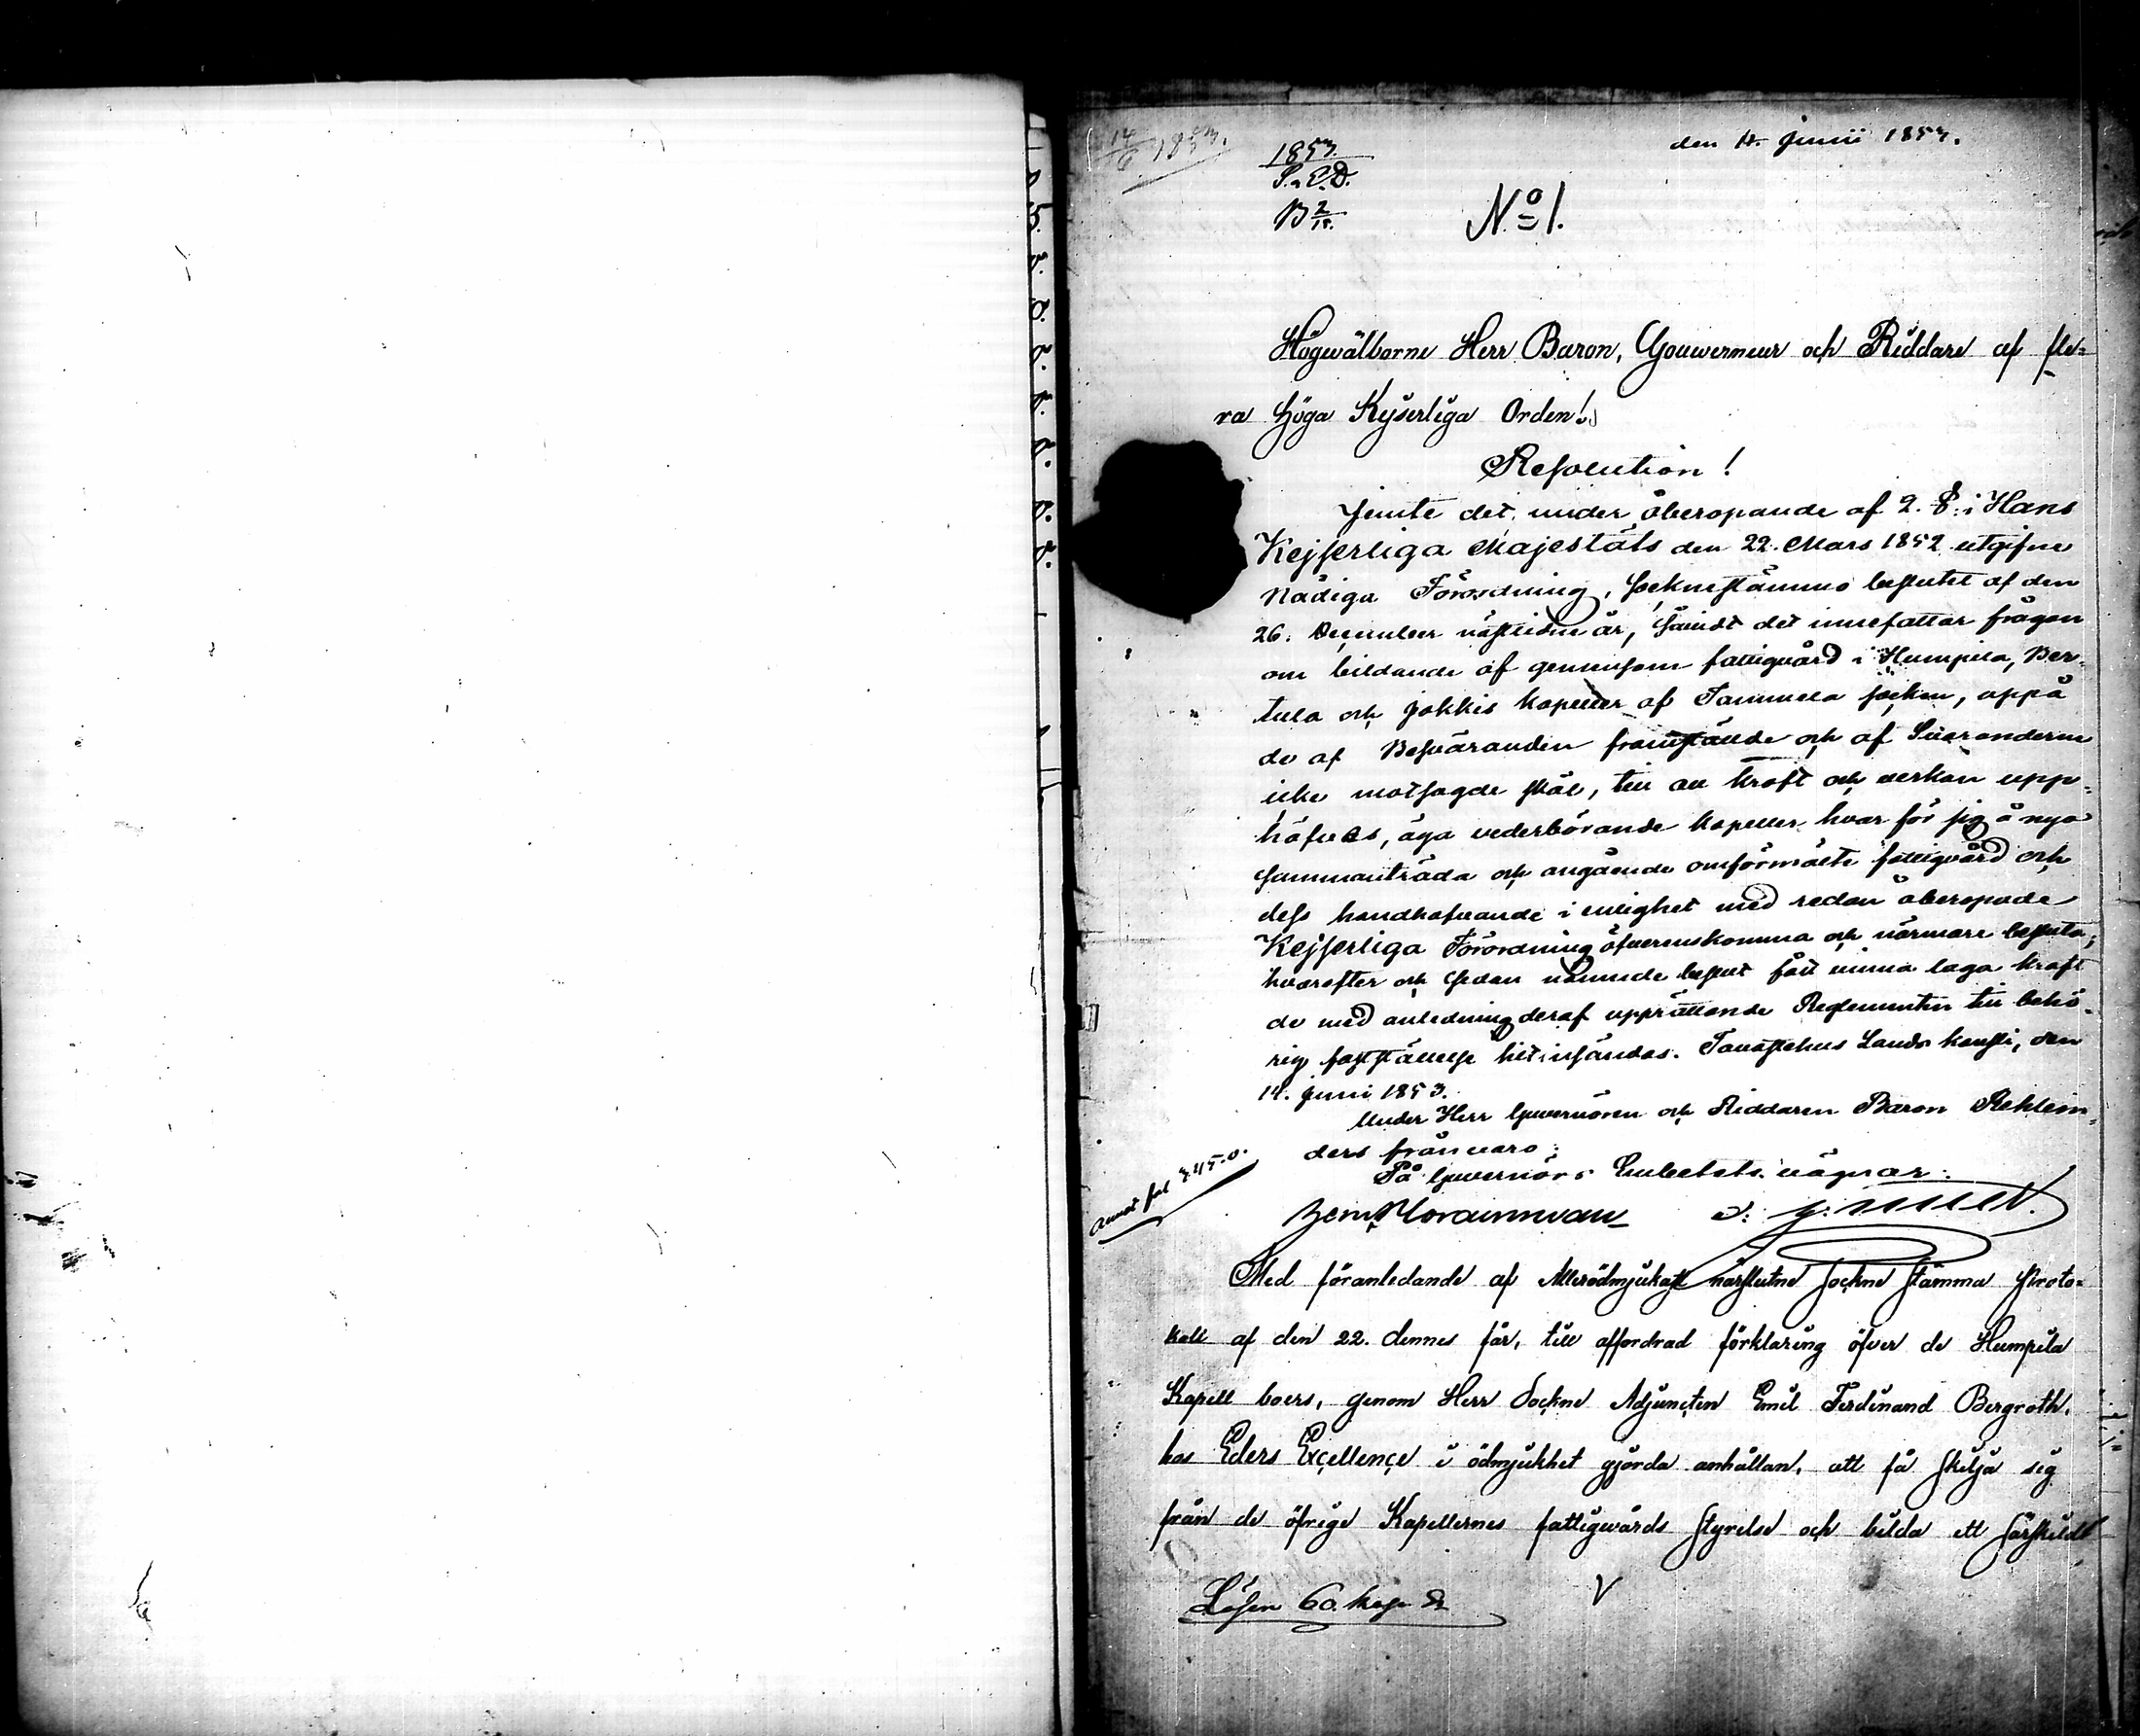 14/6 1853.
1853.
S. a. E. D.
B 2/18.
den 14. Junii 1853.
No 1.
Högwälborne Herr Baron, Gouwerneur och Riddare af fle=
ra höga Kejserliga Orden!
Resolution!
Jemte det, under åberopande af 2. §. i Hans
Kejserliga Majestäts den 22. Mars 1852 utgifne
Nådiga Förordning, socknestämmo beslutet af den
26. December nästlidne år, såvidt det innefattar frågan
om bildande af gemensam fattigvård i Humpila, Per-
tula och Jokkis kapeller af Tammela socken, uppå
de af Besväranden framstälde och af Svaranderne
icke motsagde skäl, till all kraft och verkan upp-
häfves, äga vederbörande kapeller hvar för sig å nyo
sammanträda och angående omförmälte fattigvård och
dess handhafvande i enlighet med redan åberopade
Kejserliga Förordning öfverenskomma och närmare besluta;
hvarefter och sedan nämnde beslut fått vinna laga kraft
de med anledning deraf upprättande Reglementen till behö-
rig fastställelse hit insändas. Tavastehus Lands kansli, den
14. Junii 1853.
Under Herr Guvernören och Riddaren Baron Rehbin-
ders frånvaro:
På Guvernörs Embetets vägnar:
Med föranledande af Allerödmjukast närslutne Sockne stämma Proto=
koll af den 22. dennes får, till affordrad förklaring öfver de Humpila
Kapell boers, genom Herr Sockne Adjuncten Emil Ferdinand Bergroth,
hos Eders Excellence i ödmjukhet gjorda anhållan, att få skilja sig
från de öfrige Kapellernes fattigwårds styrelse och bilda ett särskildt
Lösen 60. kop. Sr